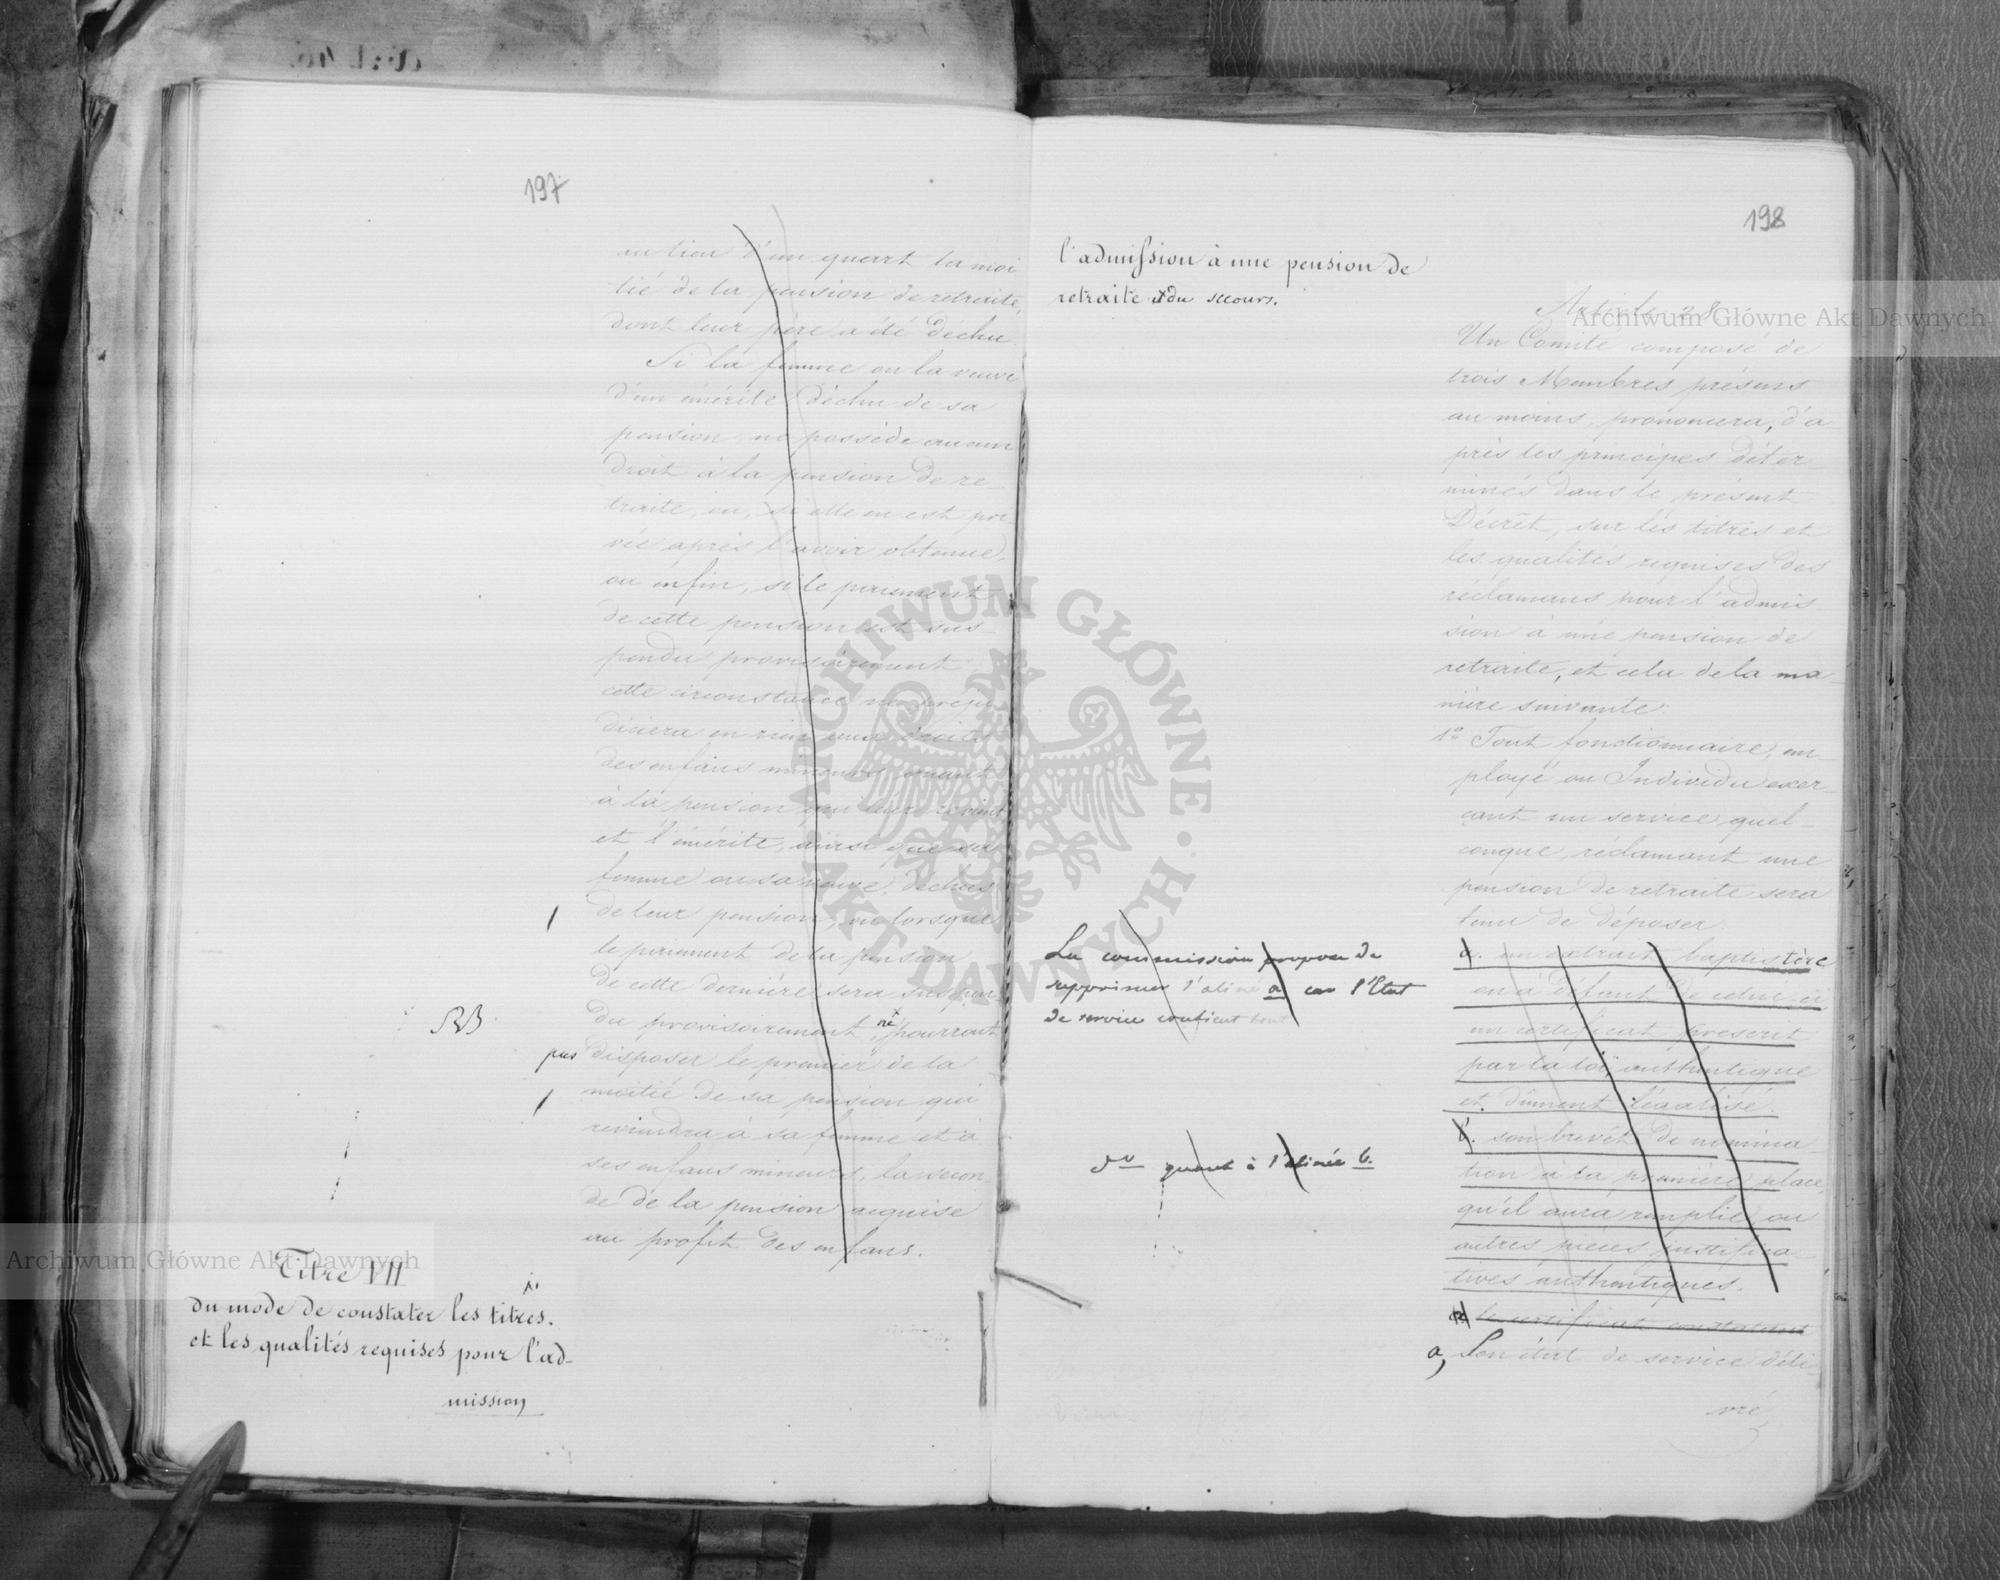 197
au lieu d'un quart la moi
tié de la pension de retraite,
dont leur père a été déchu.
Si la femme ou la veuve
d'un émérite déchu de sa
pension, ne possède aucun
droit à la pension de re-
traite, ou, si elle en est pri-
vée après l'avoir obtenue,
ou enfin, si le paiement
de cette pension est sus-
pendu provisoirement,
cette circonstance ne préju
diciera en rien aux droits
des enfans mineurs quant
à la pension qui leur revient
et l'émérite, ainsi que sa
femme ou sa veuve, déchus
de leur pension, ou lorsque
le paiement de la pension
de cette dernière sera suspen
du provisoirement, ne pourront
pas disposer le premier de la
moitié de sa pension qui
reviendra à sa femme et à
ses enfans mineurs, la secon
de de la pension acquise
au profit des enfans.
Titre VII
du mode de constater les titres.
et les qualités requises pour l'ad-
mission
198
l'admission à une pension de
retraite et du secours.
Article 28
Un Comité composé de
trois Membres présens
au moins, prononcera, d'a
près les principes déter-
minés dans le présent
Décrêt, sur les titres et
les qualités requises des
réclamans pour l'admis-
sion à une pension de
retraite, et cela de la ma-
nière suivante:
1° Tout fonctionnaire, em-
ployé ou Individu exer-
çant un service quel-
conque, réclamant une
pension de retraite sera
tenu de déposer:
La commission propose de
supprimer l'aliné a car l'Etat
de service contient tout
a. un extrait baptistère
ou à défaut de celui ci
un certificat prescrit
par la loi, authentique
et dûment légalisé
d° quant à l'alinée b.
b. son brevêt de nomina-
tion à la première place,
qu'il aura remplie, ou
autres pièces justifica-
tives authentiques.
le certificat constatant
a, Son état de service déli-
vré
Archiwum Główne Akt Dawnych
Archiwum Główne Akt Dawnych
ARCHIWUM GŁÓWNE AKT DAWNYCH